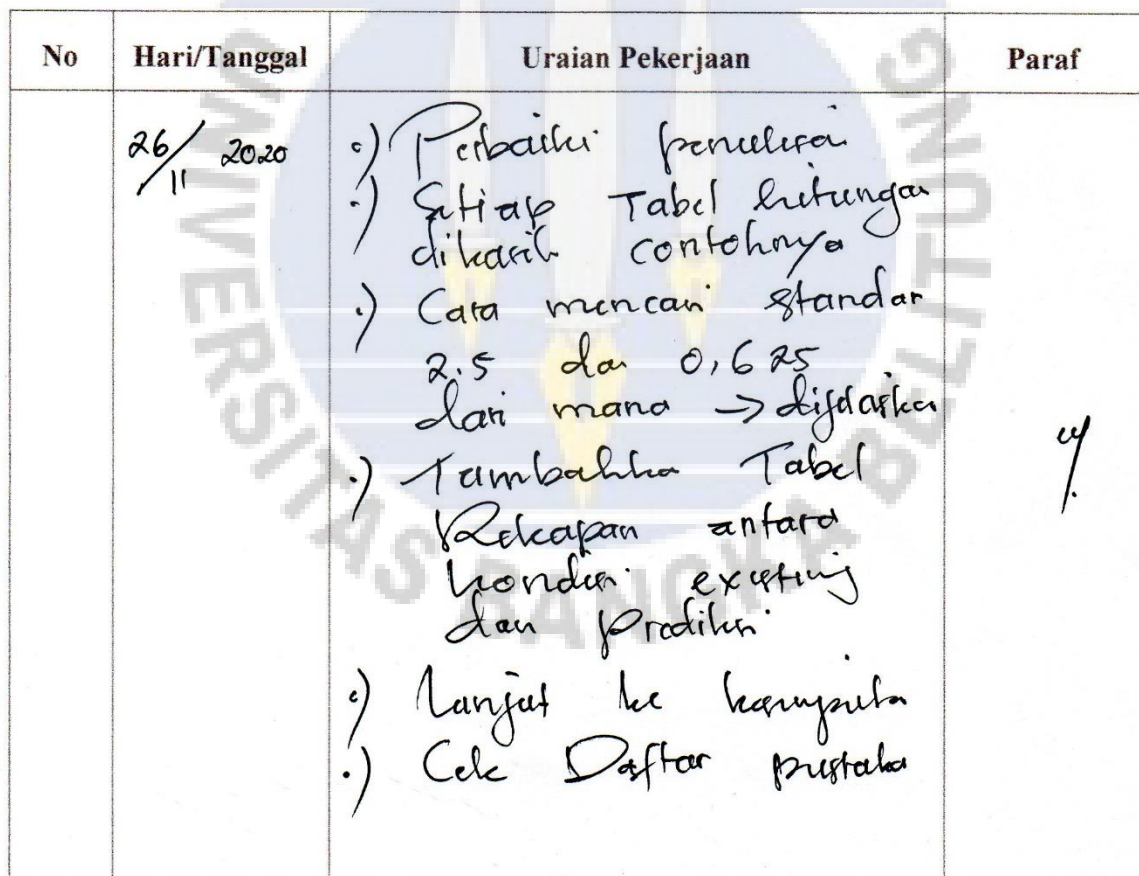 No Hari/Tanggal Uraian Pekerjaan Paraf
26/11 2020
•) Perbaiki penulisan
•) Setiap Tabel hitungan
dikasih contohnya
•) Cara mencari standar
2.5 dan 0,625
dari mana → dijelaskan
•) Tambahkan Tabel
Rekapan antara
kondisi existing
dan Prediksi
•) Lanjut ke kesimpulan
•) Cek Daftar pustaka
UNIVERSITAS BANGKA BELITUNG